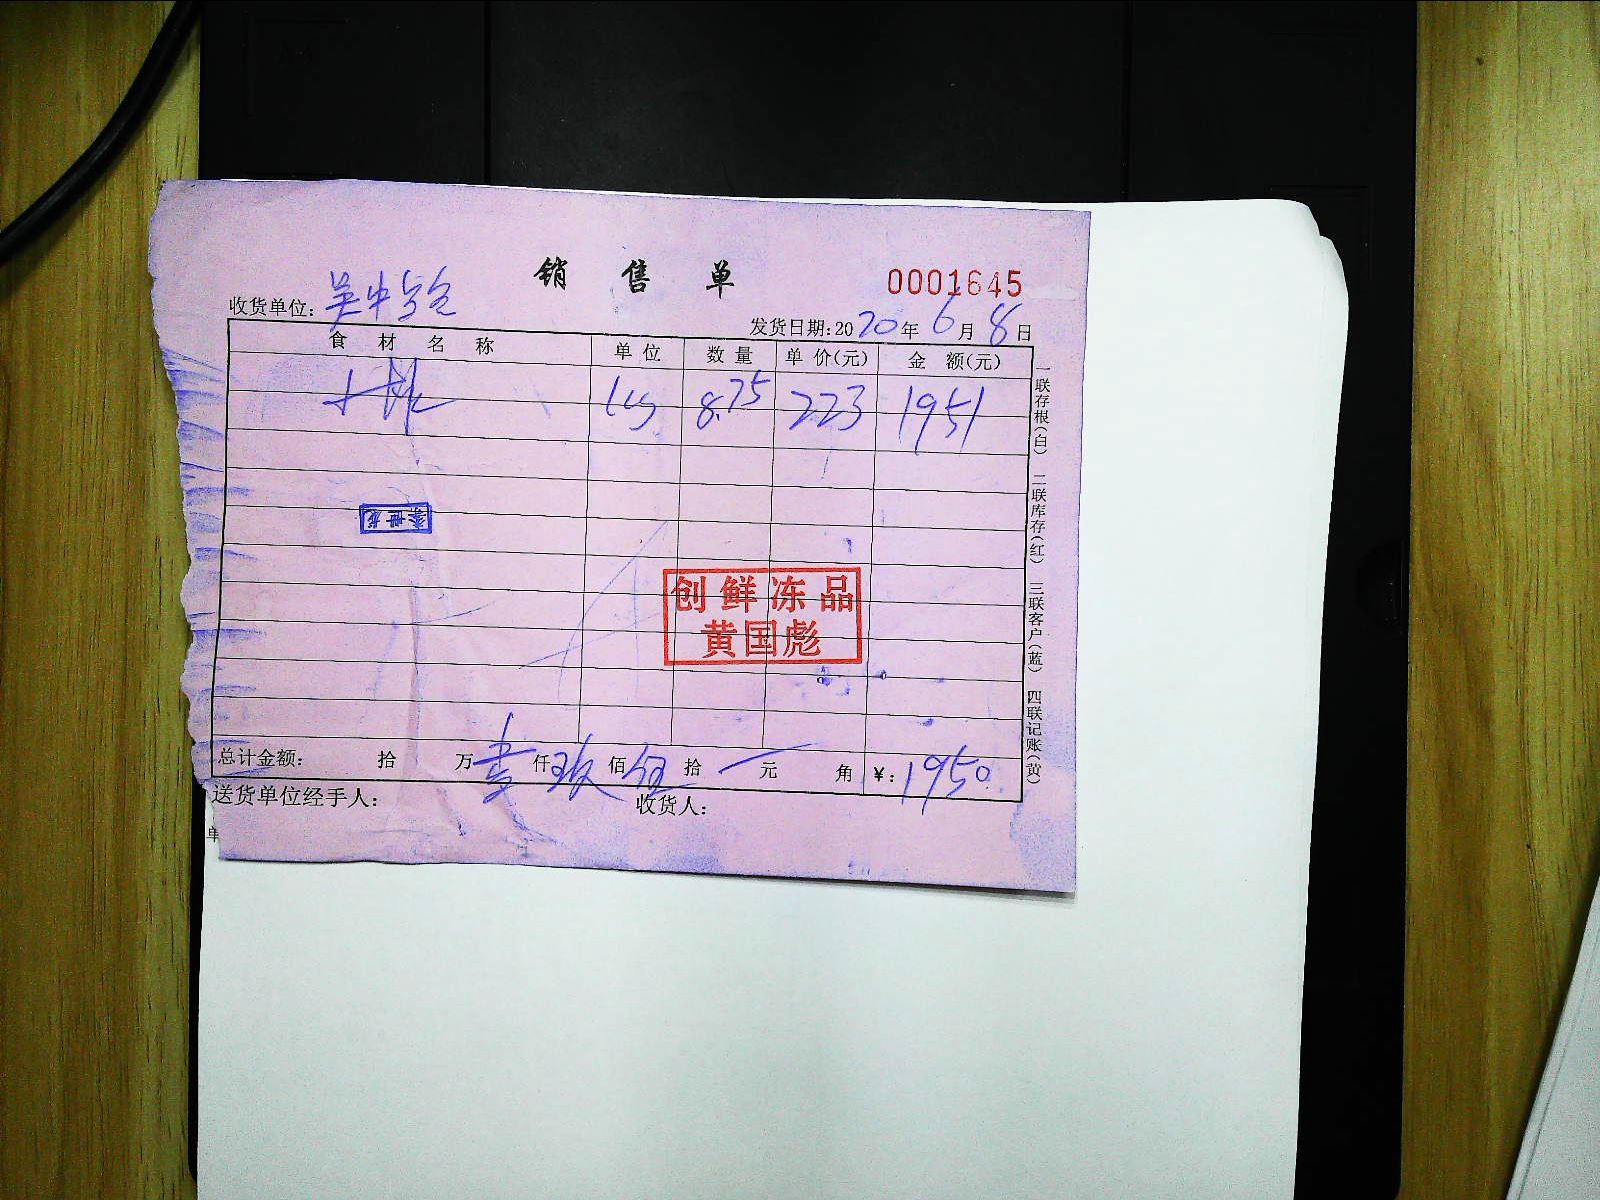 销售单
0001645
收货单位：吴中
发货日期：2020年6月8日
食材名称 单位 数量 单价(元) 金额(元)
kg 8.75 223 1951
秦世龙
创鲜冻品
黄国彪
总计金额： 拾 万 壹 仟 玖 佰 伍 拾 元 角 ¥：1950
送货单位经手人： 收货人：
一联存根(白) 二联库存(红) 三联客户(蓝) 四联记账(黄)
单